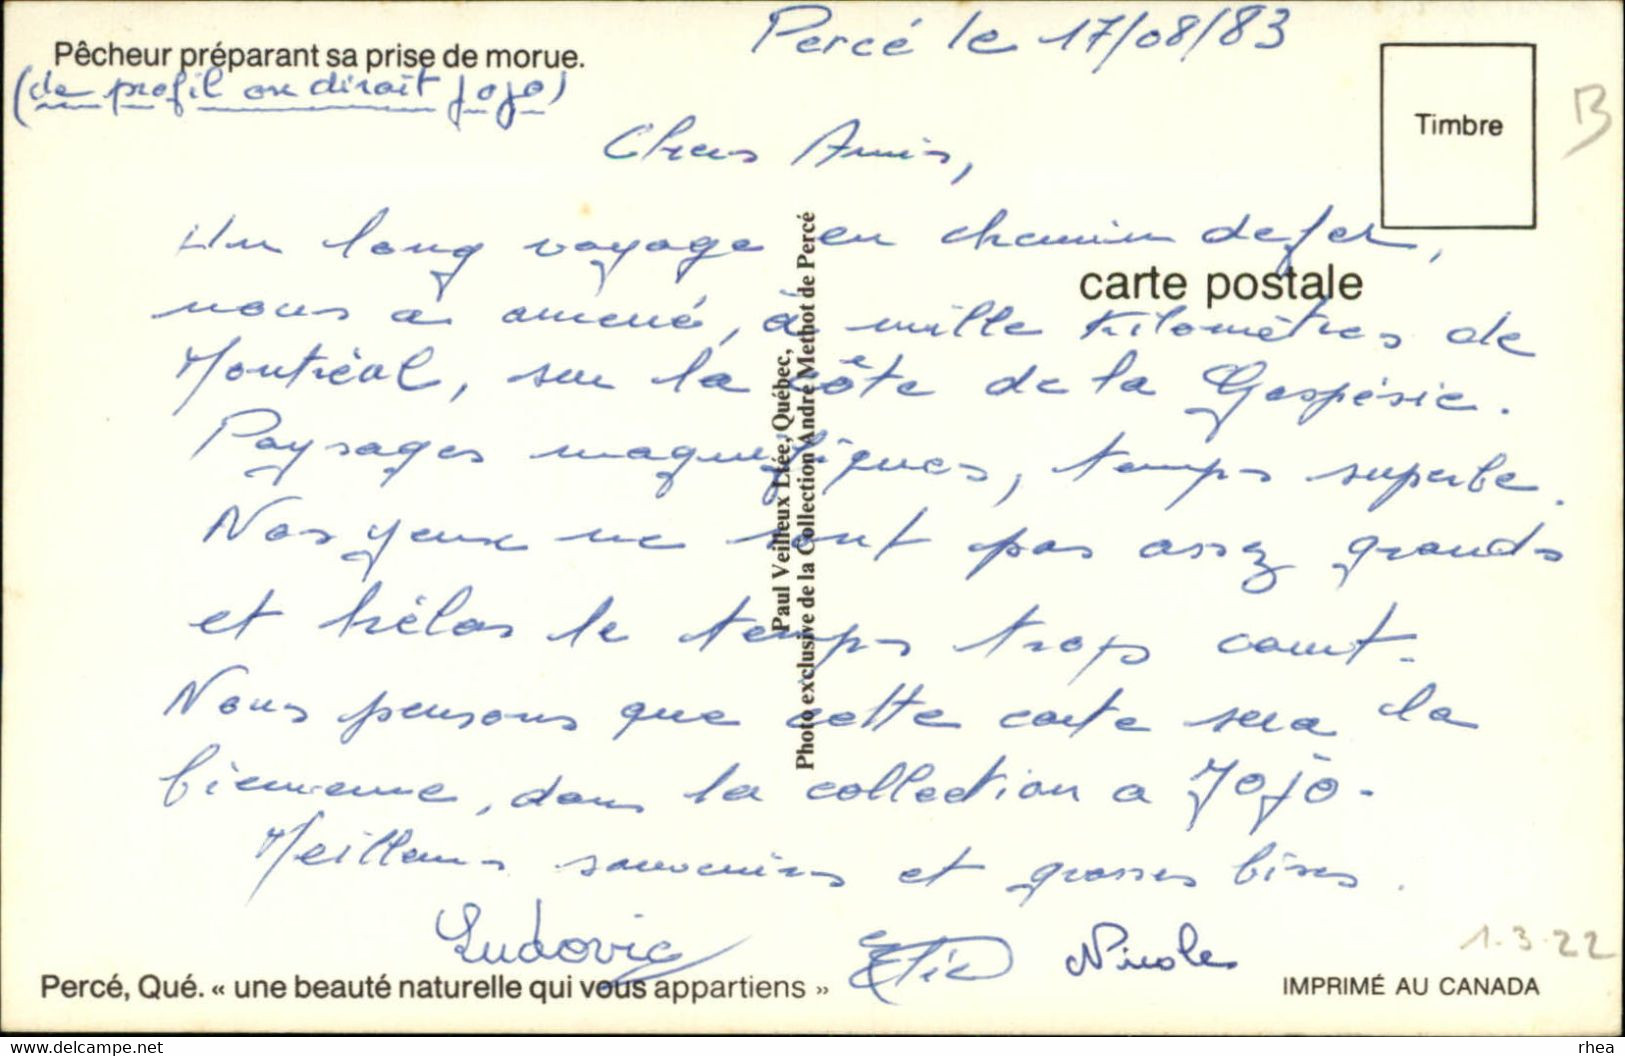 Percé le 17/08/83
Pêcheur préparant sa prise de morue.
(de profil on dirait Jojo)
Timbre
B
Chers Amis,
Un long voyage en chemin de fer,
carte postale
nous a amené, à mille kilomètres de
Montréal, sur la côte de la Gaspésie.
Paysages magnifiques, temps superbe.
Nos yeux ne sont pas assez grands
et hélas le temps trop court.
Nous pensons que cette carte sera la
bienvenue, dans la collection a Jojo.
Meilleurs souvenirs et grosses bises.
Ludovic Nicole
Paul Veilleux Ltée, Québec,
Photo exclusive de la Collection André Methot de Percé
1.3.22
Percé, Qué. « une beauté naturelle qui vous appartiens »
IMPRIMÉ AU CANADA
www.delcampe.net
rhea